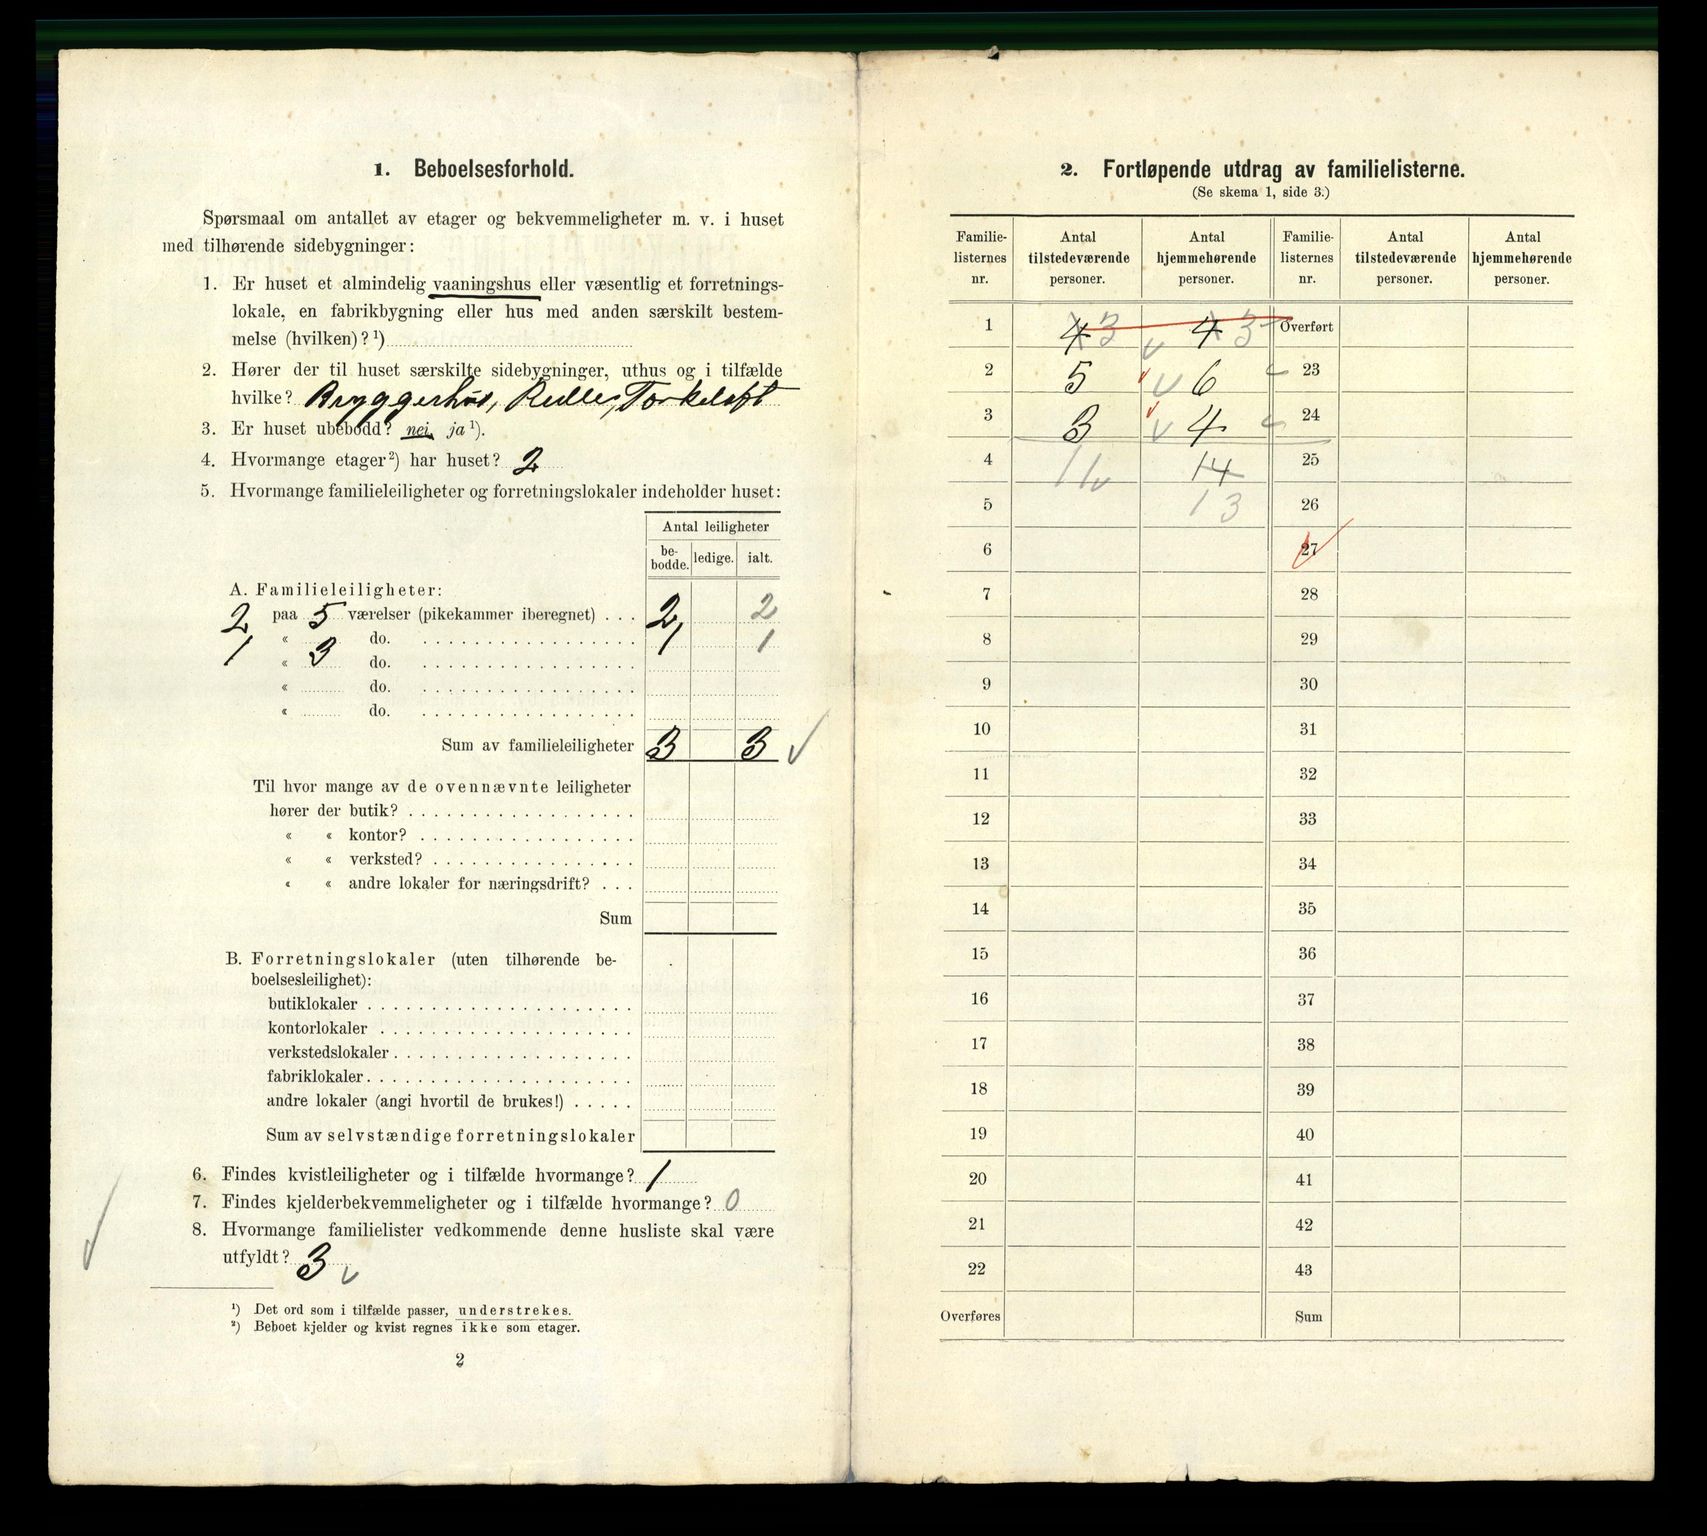 1. Beboelsesforhold.
Spørsmaal om antallet av etager og bekvemmeligheter m. v. i huset
med tilhørende sidebygninger:
1. Er huset et almindelig vaaningshus eller væsentlig et forretnings-
lokale, en fabrikbygning eller hus med anden særskilt bestem-
melse (hvilken)? ¹)
2. Hører der til huset særskilte sidebygninger, uthus og i tilfælde
hvilke? Bryggerhus, Rulle, Torkeloft
3. Er huset ubebodd? nei, ja ¹).
4. Hvormange etager ²) har huset? 2
5. Hvormange familieleiligheter og forretningslokaler indeholder huset:
Antal leiligheter
be-
bodde. ledige. ialt.
A. Familieleiligheter:
2 paa 5 værelser (pikekammer iberegnet) . . . 2 2
« do. 1 1
1 « 3 do.
« do.
« do.
Sum av familieleiligheter 3 3 ✓
Til hvor mange av de ovennævnte leiligheter
hører der butik?
« « kontor?
« « verksted?
« « andre lokaler for næringsdrift? . . .
Sum
B. Forretningslokaler (uten tilhørende be-
boelsesleilighet):
butiklokaler
kontorlokaler
verkstedslokaler
fabriklokaler
andre lokaler (angi hvortil de brukes!)
Sum av selvstændige forretningslokaler
6. Findes kvistleiligheter og i tilfælde hvormange? 1
7. Findes kjelderbekvemmeligheter og i tilfælde hvormange? 0
8. Hvormange familielister vedkommende denne husliste skal være
utfyldt? 3 ✓
¹) Det ord som i tilfælde passer, understrekes.
²) Beboet kjelder og kvist regnes ikke som etager.
2
2. Fortløpende utdrag av familielisterne.
(Se skema 1, side 3.)
Familie- Antal Antal Familie- Antal Antal
listernes tilstedeværende hjemmehørende listernes tilstedeværende hjemmehørende
nr. personer. personer. nr. personer. personer.
1 4 3 ✓ 4 3 Overført
2 5 ✓ 6 23
3 3 ✓ 4 24
4 11 ✓ 14 25
5 13 26
6 27
7 28
8 29
9 30
10 31
11 32
12 33
13 34
14 35
15 36
16 37
17 38
18 39
19 40
20 41
21 42
22 43
Overføres Sum